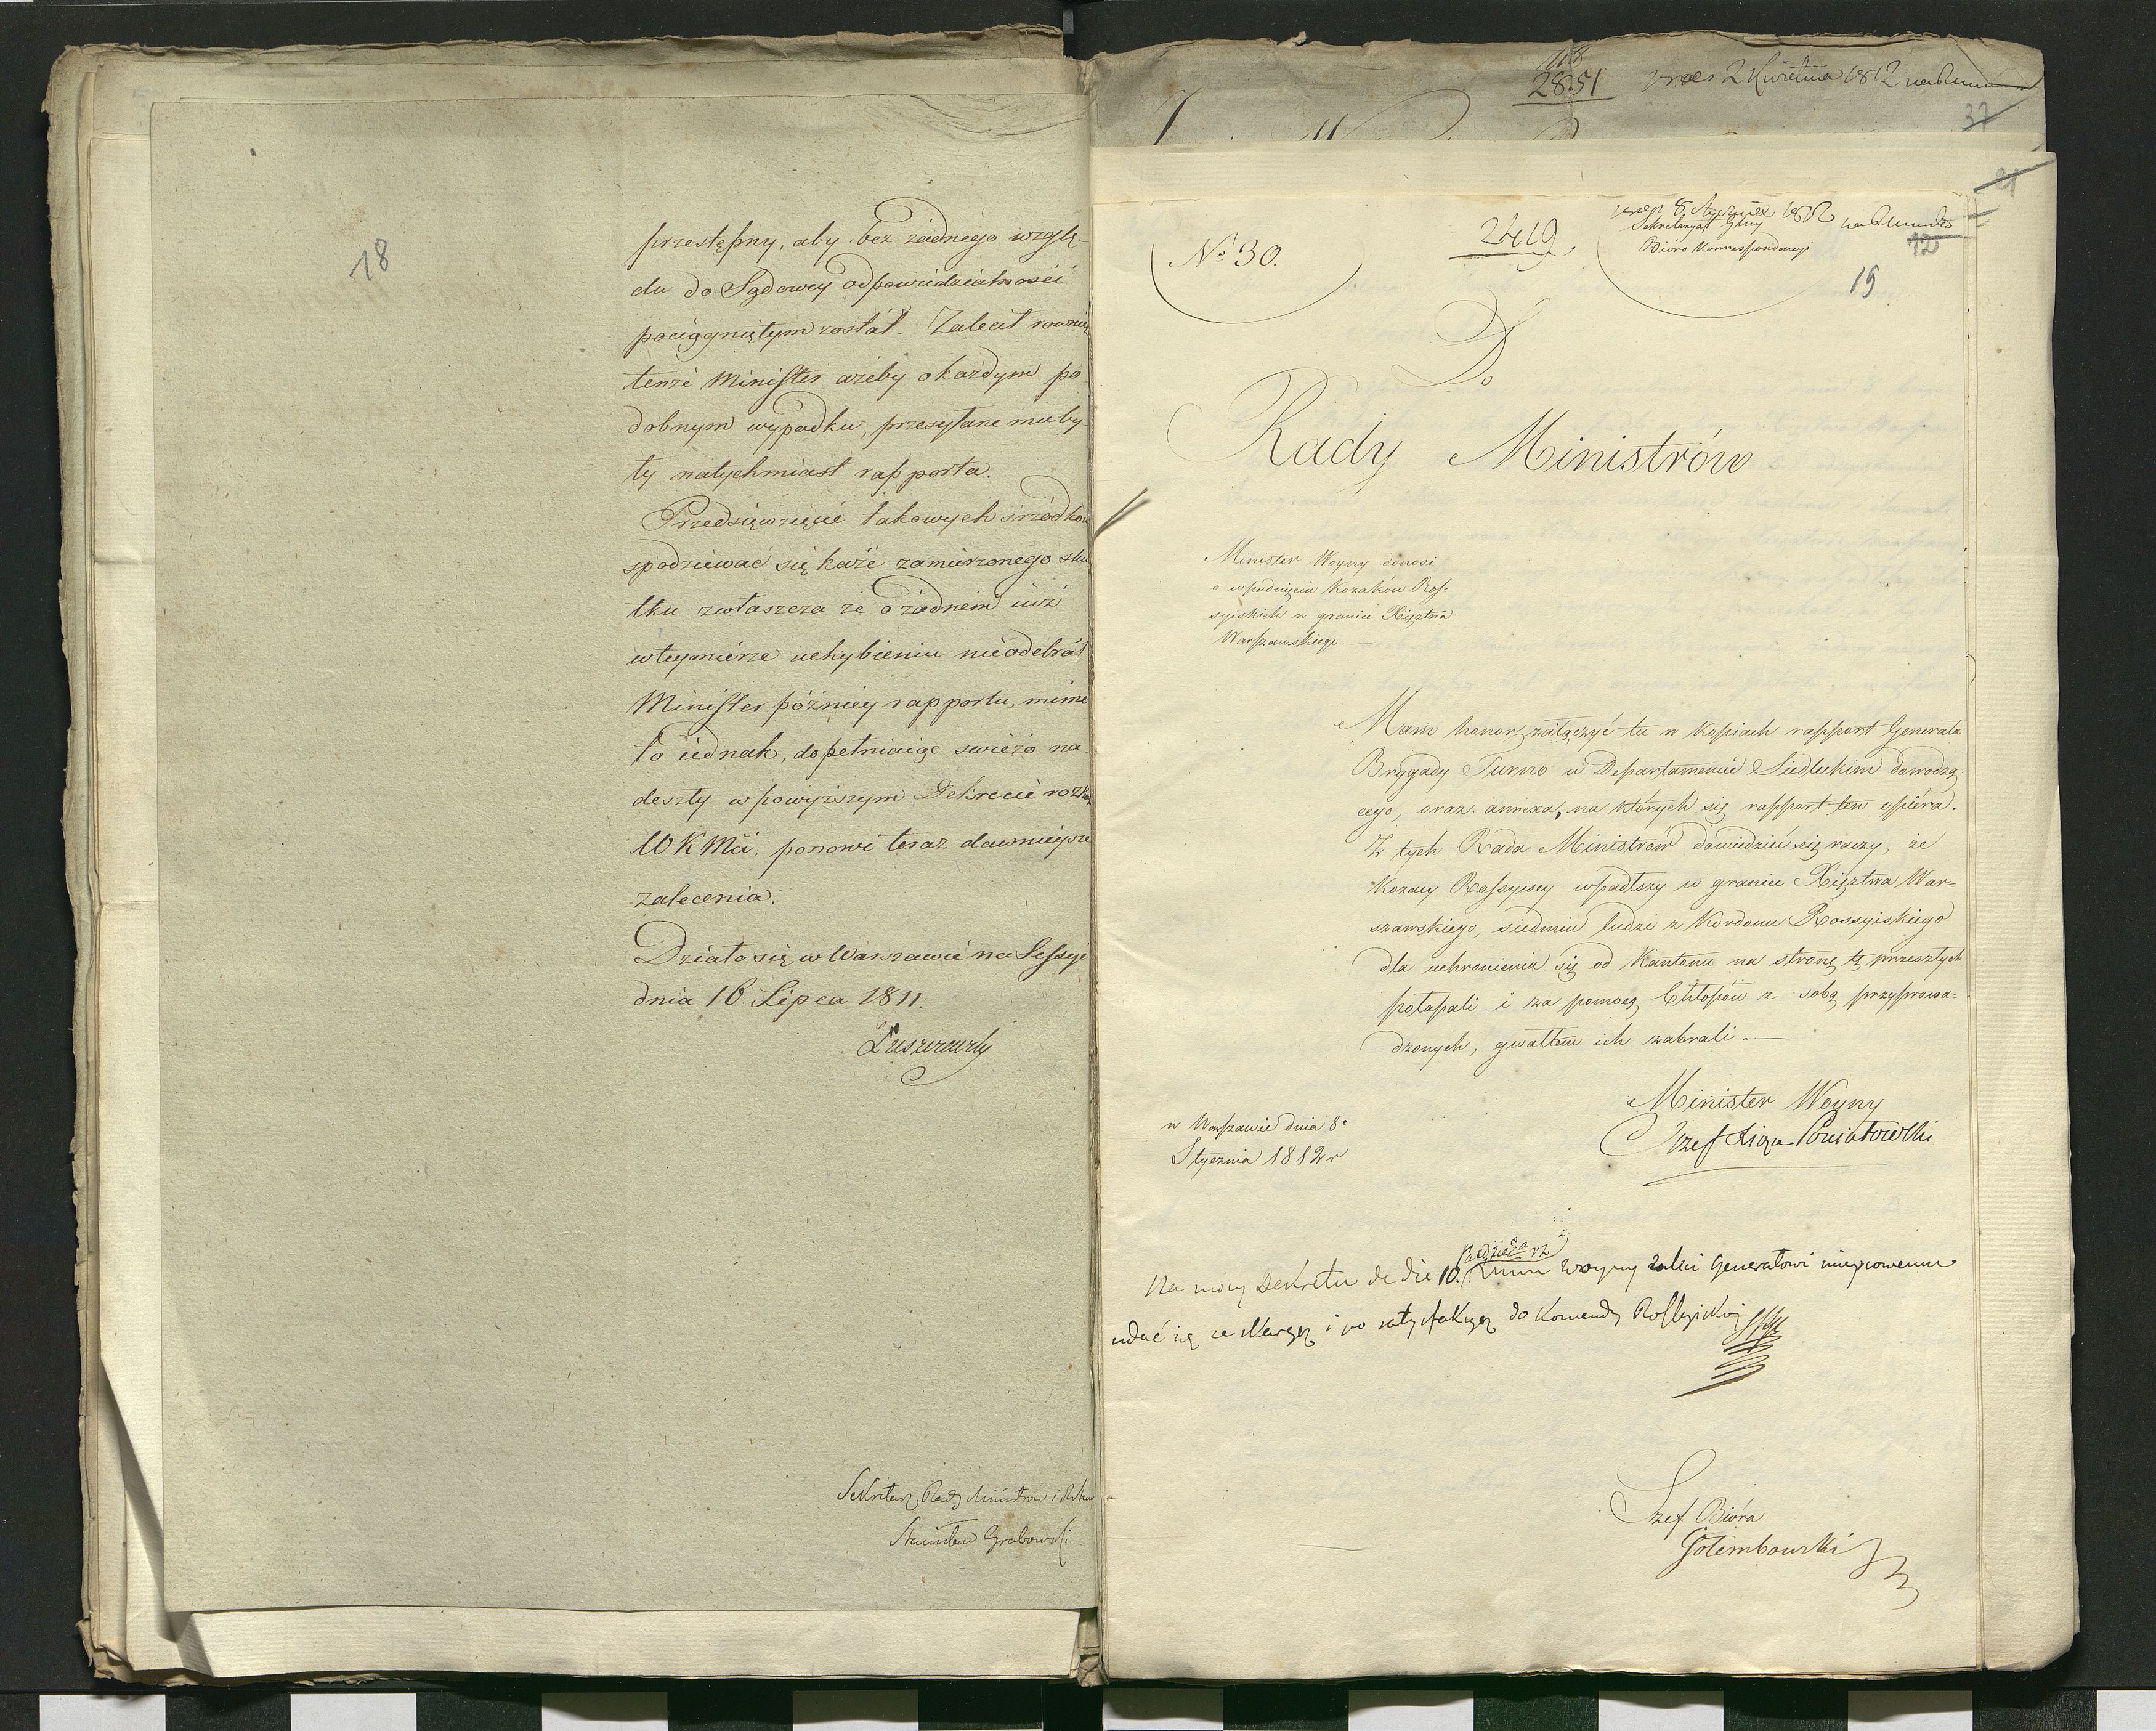 18
przestępny, aby bez żadnego wzglę-
du do Sądowey odpowiedzialności
pociągniętym został. Zalecił rownież
tenże Minister ażeby o każdym po
dobnym wypadku, przesyłane mu by-
ły natychmiast rapporta.
Przedsięwzięcie takowych srzodków
spodziewać się każe zamierzonego sku
tku zwłaszcza że o żadnem iuż
w tey mierze uchybieniu nieodebrał
Minister późniey rapportu, mimo
to iednak, dopełniaiąc swieżo na
deszły w powyższym Dekrecie rozkaz
WKMci. ponowi teraz dawnieysze
zalecenia.
Działo się w Warszawie na Sessyi
dnia 16. Lipca 1811.
Łuszczewski
Sekretarz Rady Ministrow i
Stanisław Grabowski
2851 2 Kwietnia 1812
37
21
No 30.
2419.
8 Stycznia 1812
Sekretaryat Glny
Bióro Korrespondencyi
12
19
Do
Rady Ministrów
Minister Woyny donosi
o wpadnięciu Kozaków Ros-
syiskich w granice Xięztwa
Warszawskiego.
Mam honor załączyć tu w kopiach rapport Generała
Brygady Turno w Departamencie Siedleckim dowodzą-
cego, oraz annexa, na których się rapport ten opiera.
Z tych Rada Ministrów dowiedzieć się raczy, że
Kozacy Rossyiscy wpadłszy w granice Xięztwa War=
szawskiego, siedmiu ludzi z Kordonu Rossyiskiego
dla uchronienia się od Kantonu na stronę tę przeszłych
połapali i za pomocą Chłopów z sobą przyprowa=
dzonych, gwałtem ich zabrali. —
Minister Woyny
Jozef Xiąże Poniatowski
w Warszawie dnia 8o
Stycznia 1812 r
Na mocy Dekretu de die 10. Woyny zaleci Generałowi mieyscowemu
udać się ze skargą i po satysfakcyą do Komendy Rossyiskiey
Szef Bióra
Gołembowski